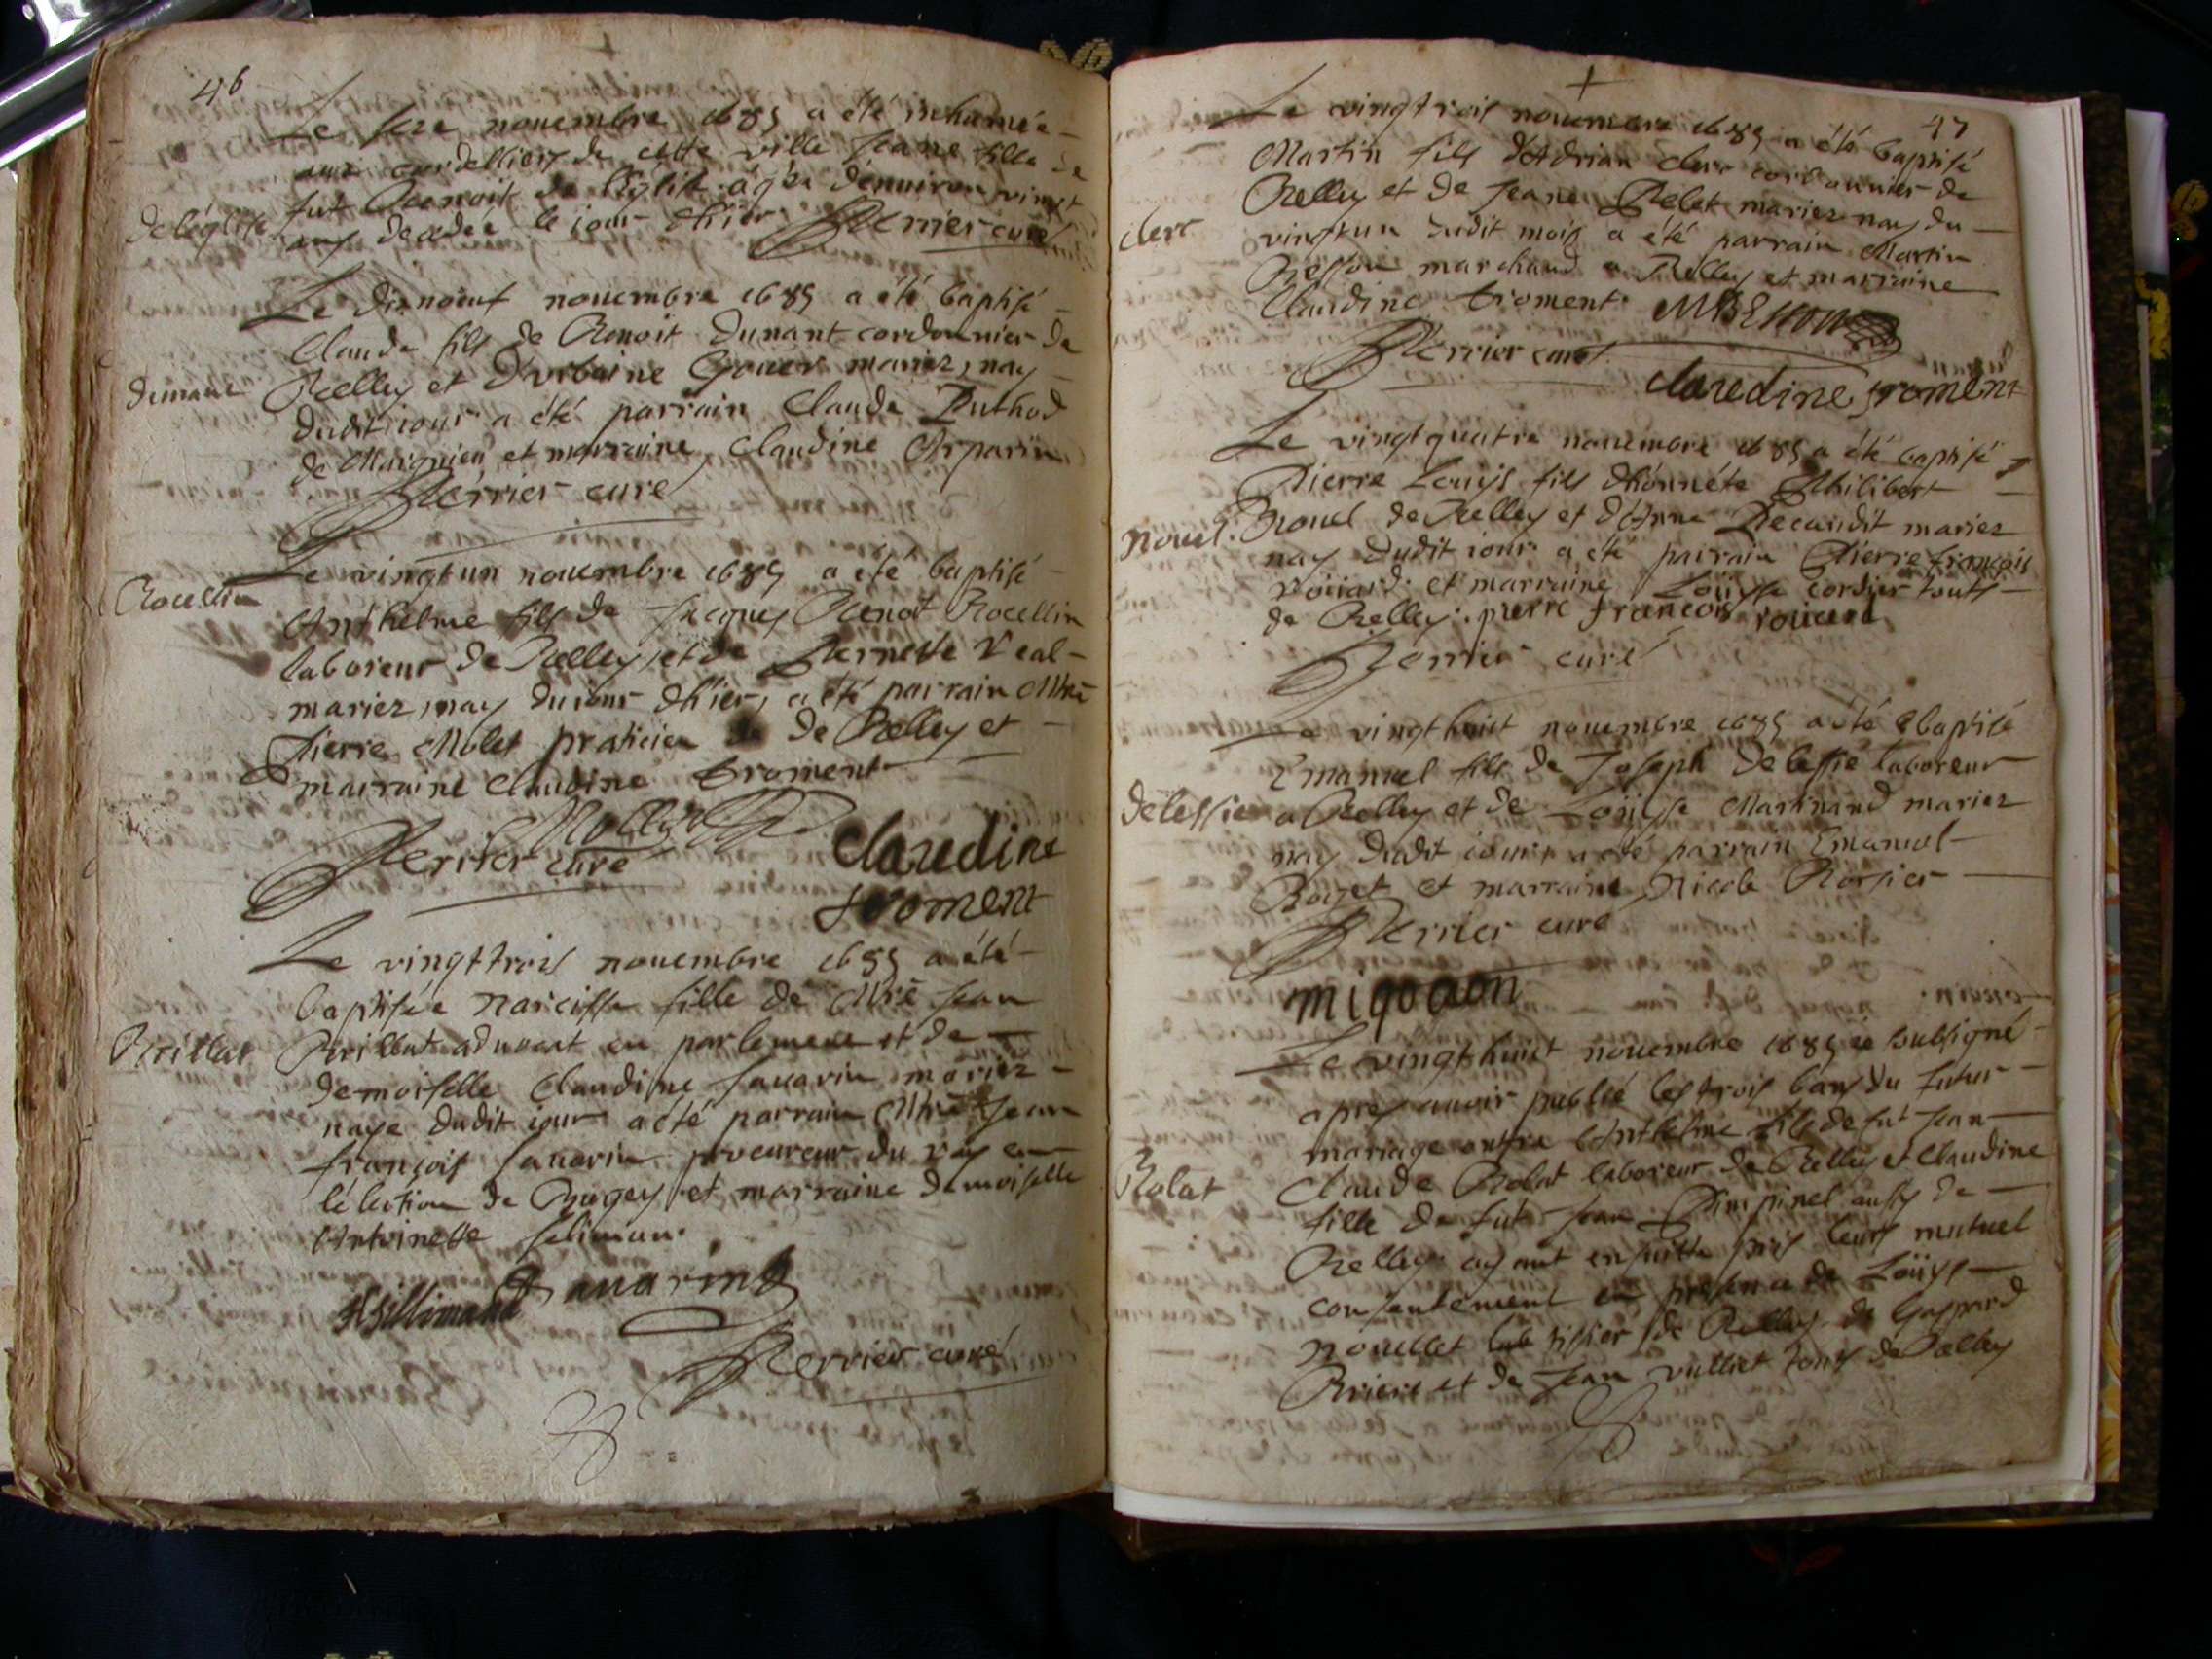 46
Le seze nouembre 1685 a été inhumée
aux cordelliers de cette ville Jeane fille de
fut Benoit de léglise agée denuiron vingt
de léglise
ans decedée le iour dhier Perrier curé
Le disneuf nouembre 1685 a été baptisé
Claude fils de Benoit Dunant cordonnier de
Dunant
Belley et durbaine Goyet mariez, nay
dudit iour a été parrain Claude Duthod
de Maignieu et marraine Claudine Arparin
Perrier curé
Le vingt un nouembre 1685 a eté baptisé
Rocellin
Anthelme fils de Jacques Benoit Rocellin
laboreur de Belley, et de Pernette Real
mariez, nay du iour dhier, a été parrain Mtre
Pierre Molet praticien de Belley et
marraine Claudine froment
Mollet
Perrier curé
Claudine
froment
Le vingt trois nouembre 1685 a été
baptisée Narcisse fille de Mtre Jean
Brillat
Brillat aduocat en parlement et de
demoiselle Claudine Sauarin mariez
naye dudit iour a été parrain Mtre Jean
françois Sauarin procureur du roy en
lélection de Bugey et marraine demoiselle
Antoinette
Sauarin
Perrier curé
47
Le vingt trois nouembre 1685 a été baptisé
Martin fils d'Adrian clerc cordonnier de
Belley et de Jeane Pelet mariez nay du
clerc
vingt un dudit mois a été parrain Martin
Besson marchand a Belley et marraine
Claudine froment MBesson
Perrier curé
Claudine froment
Le vingt quatre nouembre 1685 a été baptisé
Pierre Louis fils dhonnéte Philibert
Nouel
Nouel de Belley et d'Anne Decaudit mariez
nay dudit iour a été parrain Pierre françois
rouiard et marraine Loüyse Cordier touts
de Belley. pierre françois rouiard
Perrier curé
Le vingt huict nouembre 1685 a été baptisé
Emanuel fils de Joseph Delessie laboreur
Delessie
a Belley et de Loüyse Martinand mariez
nay dudit iour, a été parrain Emanuel
Boget et marraine Nicole Rossier
Perrier curé
migodon
Le vingt huict nouembre 1685 ie soubsigné
apres auoir publié les trois bans du futur
mariage entre Anthelme fils de fut Jean
Rolat
Claude Rolat laboreur de Belley et Claudine
fille de fut Jean Pimpinel aussy de
Belley ayant ensuitte pris leurs mutuel
consentement en presence de Loüys
Nouellet tissier de Belley de Gaspard
Briere et de Jean vulliet touts de Belley